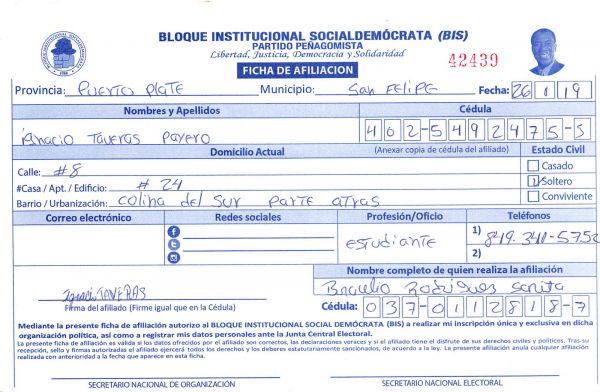 BLOQUE INSTITUCIONAL SOCIALDEMÓCRATA (BIS)
PARTIDO PEÑAGOMISTA
Libertad, Justicia, Democracia y Solidaridad
42439
FICHA DE AFILIACION
Provincia: Puerto Plate Municipio: San Felipe Fecha: 26 1 19
Nombres y Apellidos Cédula
ignacio Taveras Payero 402-5492475-5
Domicilio Actual (Anexar copia de cédula del afiliado) Estado Civil
Calle: #8 Casado
#Casa / Apt. / Edificio: # 24 Soltero
Barrio / Urbanización: Colina del Sur Parte atras Conviviente
Correo electrónico Redes sociales Profesión/Oficio Teléfonos
estudiante 1) 849-341-5752
2)
Nombre completo de quien realiza la afiliación
Ignacio TAVERAS Rodriguez
Firma del afiliado (Firme igual que en la Cédula) Cédula: 037-0112818-7
Mediante la presente ficha de afiliación autorizo al BLOQUE INSTITUCIONAL SOCIAL DEMÓCRATA (BIS) a realizar mi inscripción única y exclusiva en dicha
organización política, así como a registrar mis datos personales ante la Junta Central Electoral.
La presente ficha de afiliación es válida si los datos ofrecidos por el afiliado son correctos, las declaraciones veraces y si el afiliado tiene el disfrute de sus derechos civiles y políticos. Tras su
recepción, sello y firmas autorizadas el afiliado ejercerá todos los derechos y los deberes estatutariamente sancionados, de acuerdo a la ley. La presente afiliación anula cualquier afiliación
realizada con anterioridad a la fecha que aparece en esta ficha.
SECRETARIO NACIONAL DE ORGANIZACIÓN SECRETARIO NACIONAL ELECTORAL